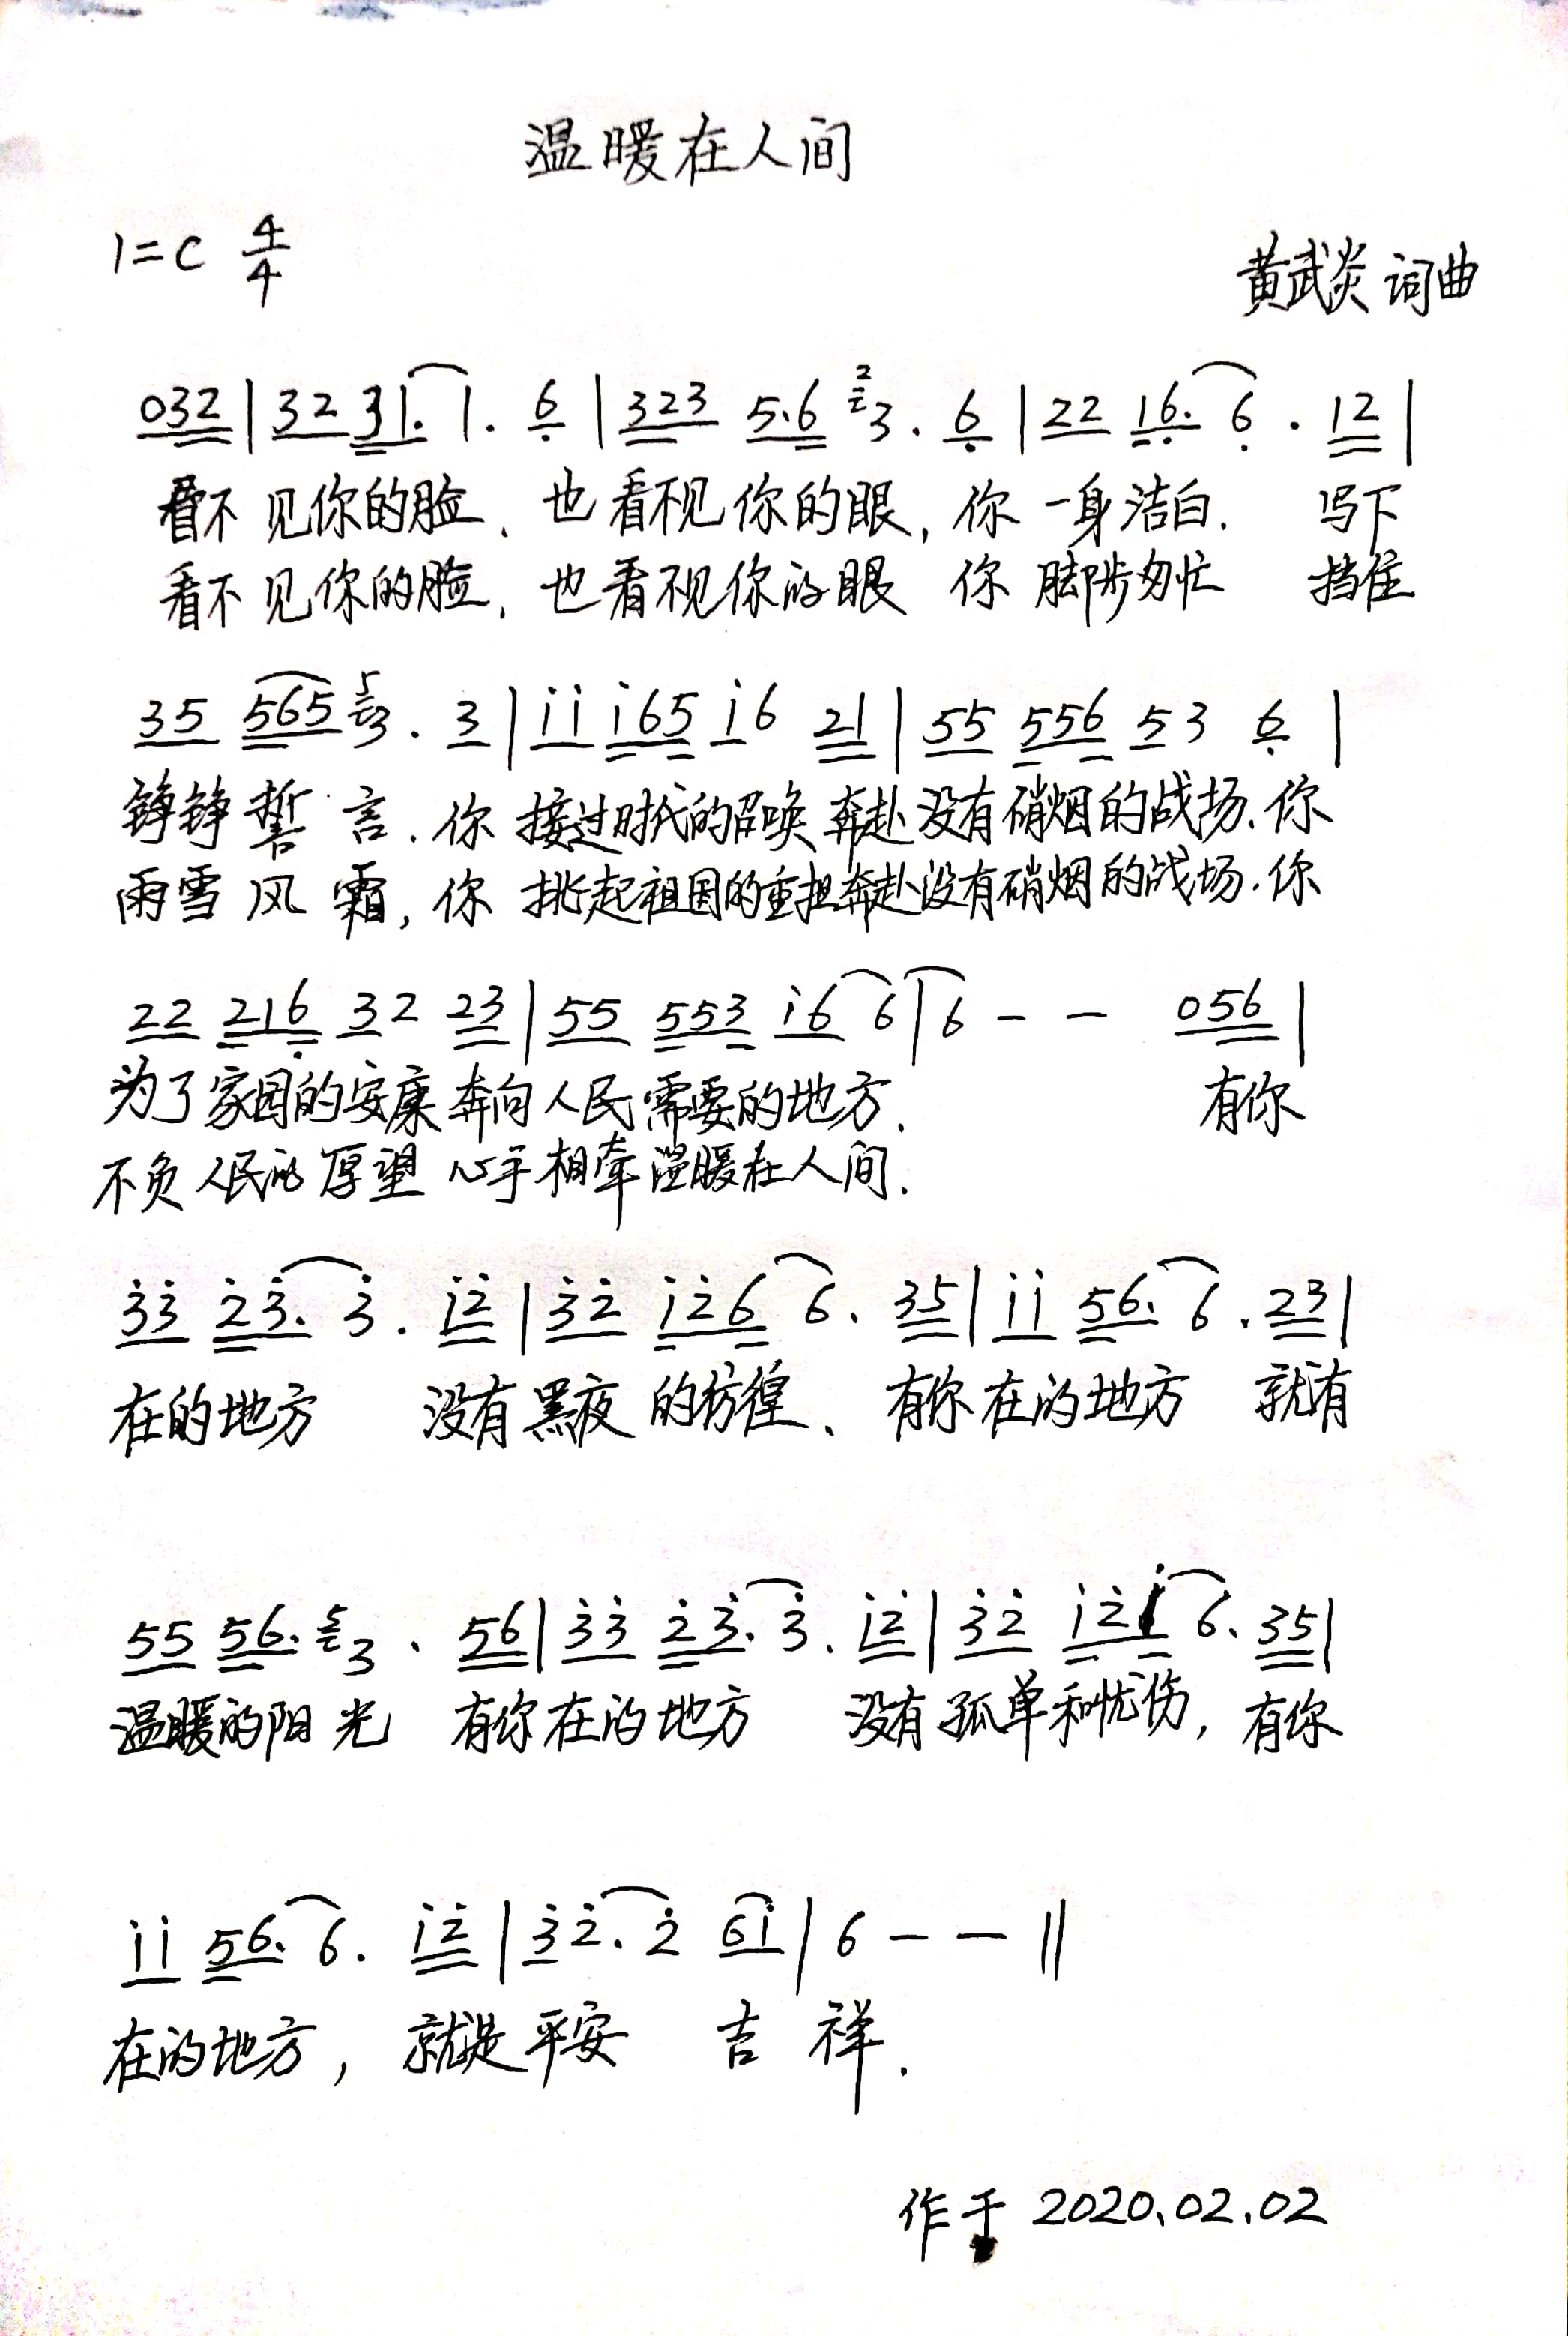 温暖在人间
1=C 4/4
黄武炎 词曲
032 | 32 31. 1. 6 | 323 5.6 2 3. 6 | 22 16. 6. 12 |
看不见你的脸、也看不见你的眼,你一身洁白. 写下
看不见你的脸, 也看不见你的眼 你脚步匆忙 挡住
35 565 5 3. 3 | i i i65 i6 21 | 55 556 53 6 |
铮铮誓言.你接过时代的召唤奔赴没有硝烟的战场.你
雨雪风霜,你挑起祖国的重担奔赴没有硝烟的战场.你
22 216 32 23 | 55 553 i6 6 | 6 - - 056 |
为了家园的安康奔向人民需要的地方. 有你
不负人民的厚望 心手相牵温暖在人间.
3̇3̇ 2̇3̇. 3̇. i2̇ | 3̇2̇ i2̇6 6. 35 | i i 56. 6. 23 |
在的地方 没有黑夜的彷徨、有你在的地方 就有
55 56. 5 3. 56 | 3̇3̇ 2̇3̇. 3̇. i2̇ | 3̇2̇ i2̇i 6. 35 |
温暖的阳光 有你在的地方 没有孤单和忧伤, 有你
i i 56. 6. i2̇ | 3̇2̇. 2̇ 6i | 6 - - ‖
在的地方, 就是平安 吉祥.
作于 2020.02.02